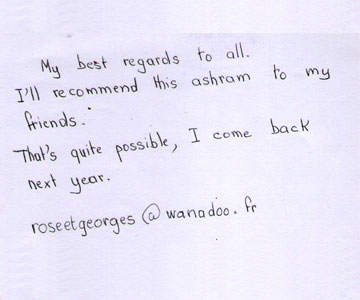 My best regards to all.
I'll recommend this ashram to my
friends.
That's quite possible, I come back
next year.
roseetgeorges@wanadoo.fr